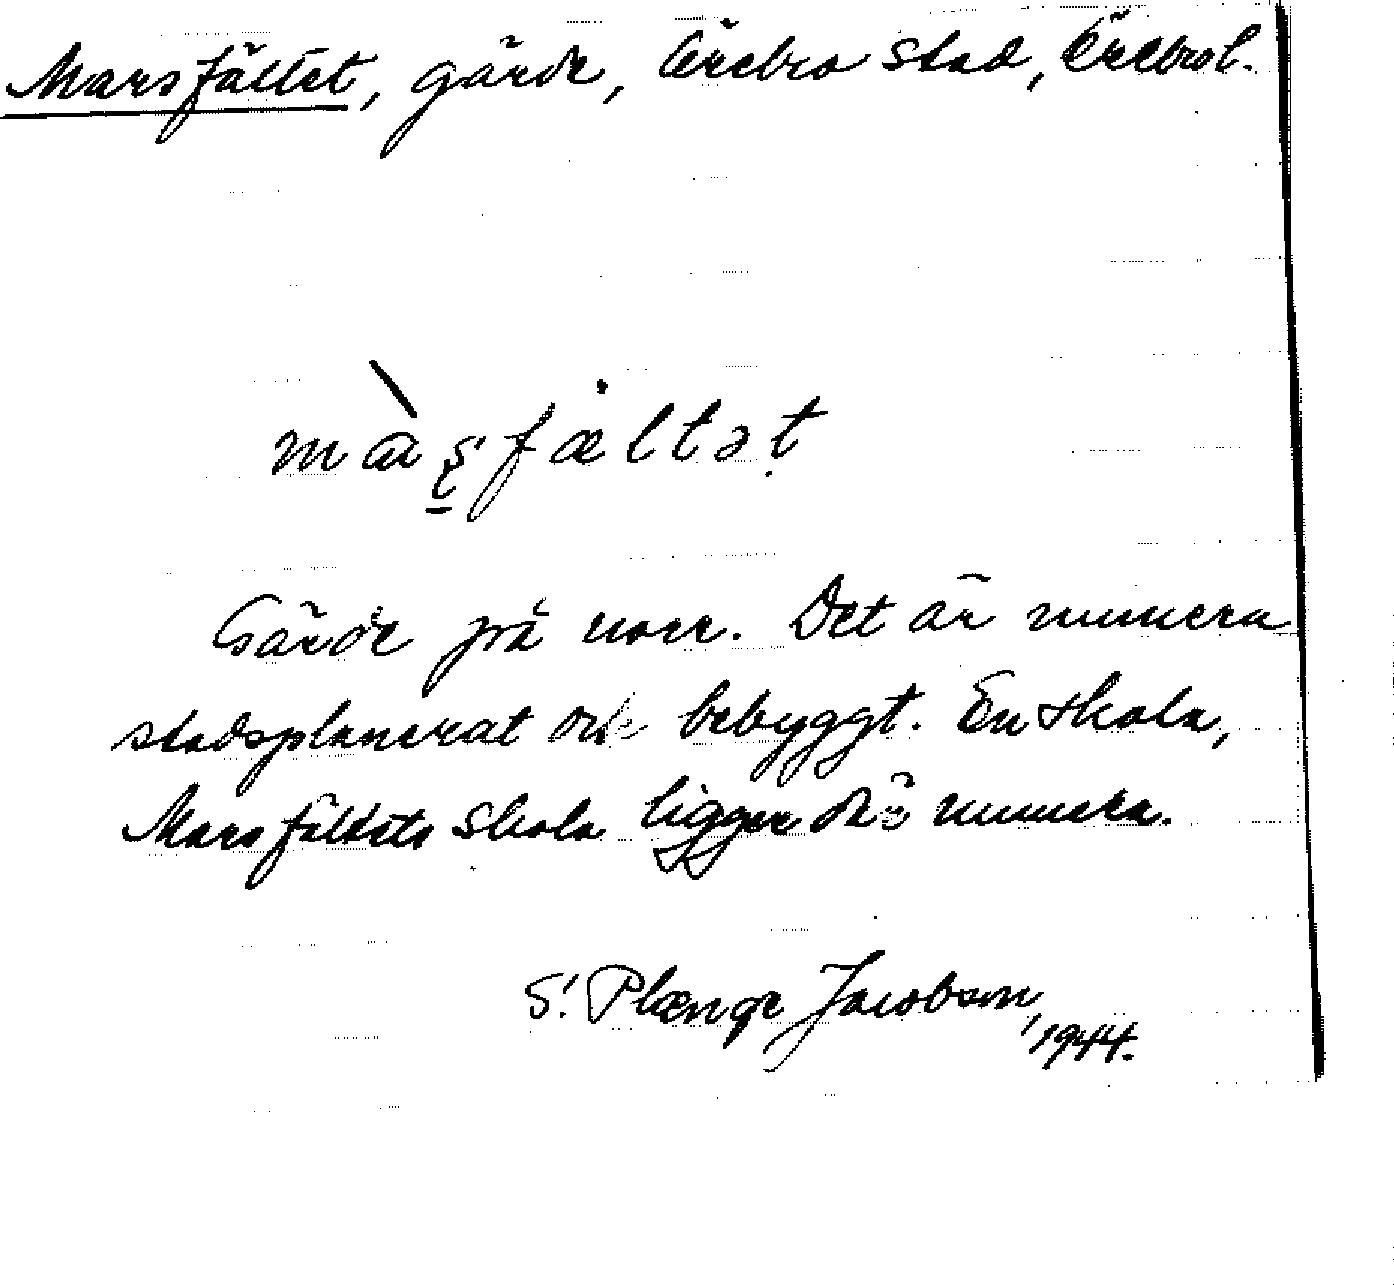 Marsfältet, gärde, Örebro stad, Örebro l.
mas̠fæltət
Gärde på norr. Det är numera
stadsplanerat och bebyggt. En skola,
Marsfältets skola ligger där numera.
S. Plænge Jacobson,
1944.